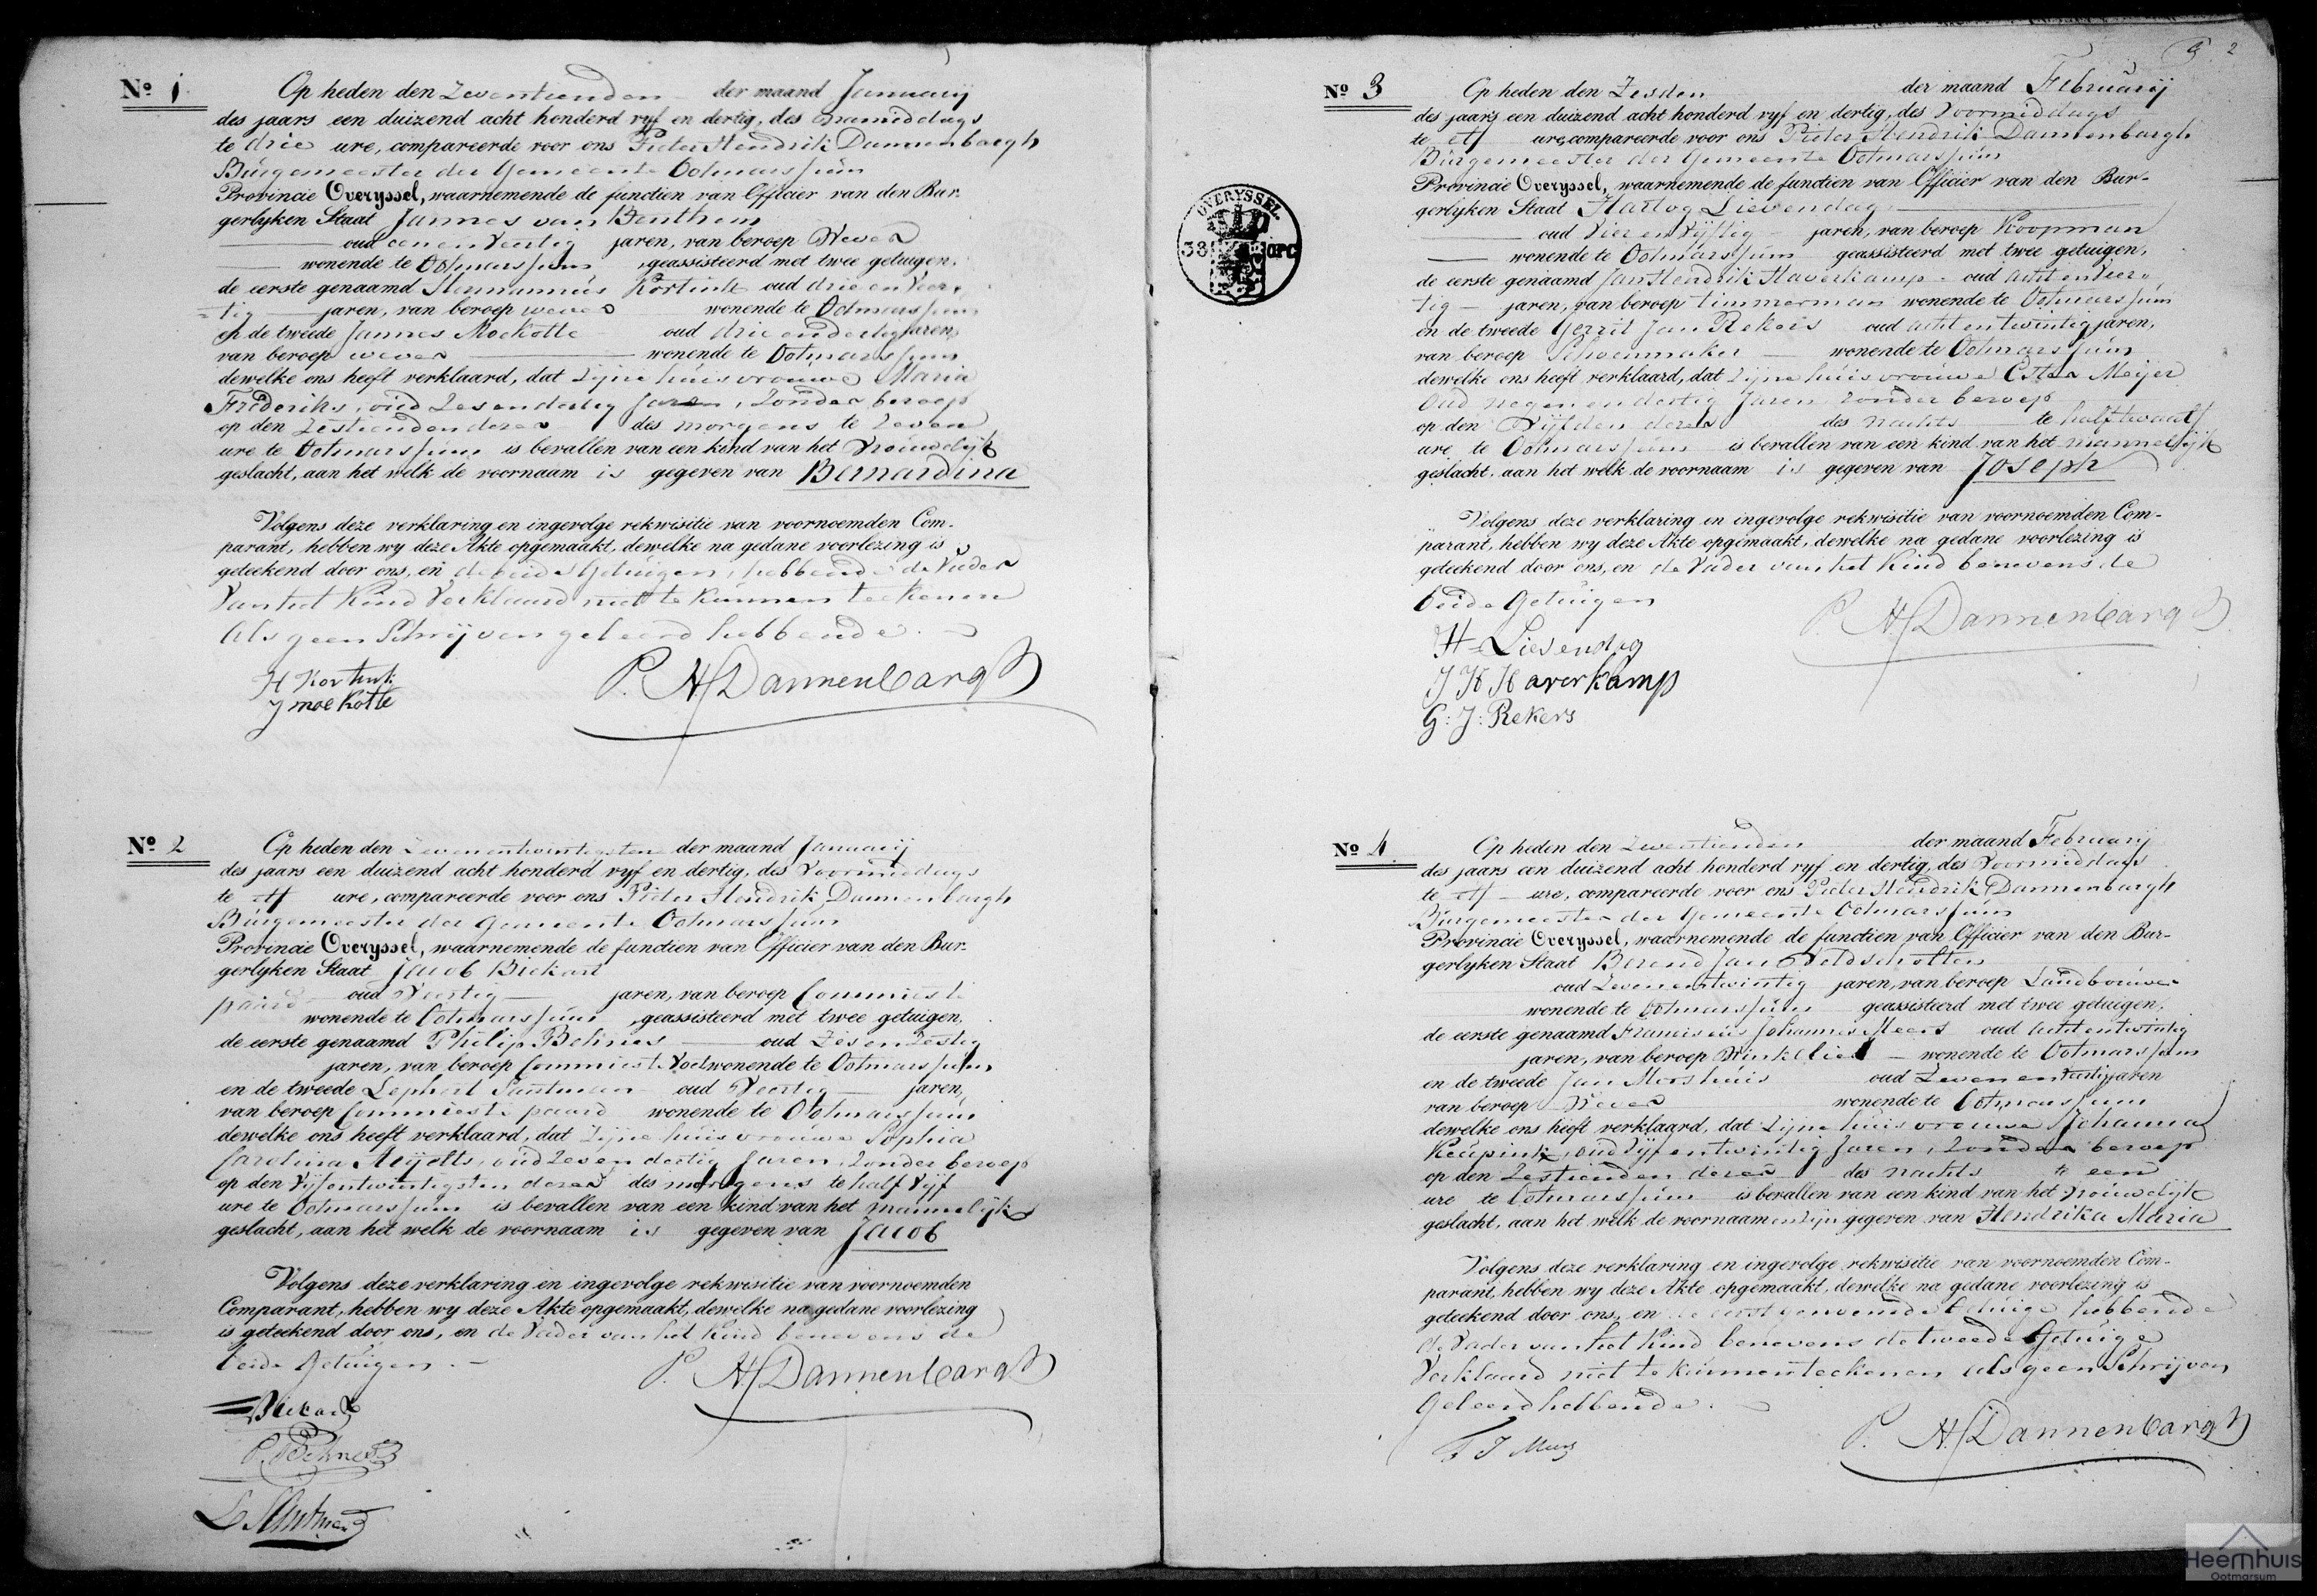 Nº 1
Op heden den Zeventienden der maand Januarij
des jaars een duizend acht honderd vyf en dertig, des namiddags
te drie ure, compareerde voor ons Pieter Hendrik Dannenbargh
Burgemeester der Gemeente Ootmarssum
Provincie Overyssel, waarnemende de functien van Officier van den Bur-
gerlyken Staat Jannes van Benthem
oud eenen Veertig jaren, van beroep Wever
wonende te Ootmarssum, geassisteerd met twee getuigen,
de eerste genaamd Hermannus Kortink oud drie en Veer-
tig jaren, van beroep wever wonende te Ootmarssum
en de tweede Jannes Moekotte oud drie endertig jaren,
van beroep wever wonende te Ootmarssum
dewelke ons heeft verklaard, dat Zijne huisvrouwe Maria
Frederiks, oud Zesendertig Jaren, Zonder beroep
op den Zestienden dezer des morgens te Zeven
ure te Ootmarssum is bevallen van een kind van het Vrouwelijk
geslacht, aan het welk de voornaam is gegeven van Bernardina
Volgens deze verklaring en ingevolge rekwisitie van voornoemden Com-
parant, hebben wy deze Akte opgemaakt, dewelke na gedane voorlezing is
geteekend door ons, en de beide Getuigen, hebbende de Vader
Van het Kind Verklaard niet te Kunnen teekenen
Als geen Schrijven geleerd hebbende.
H Kortink
J moekotte
P. H. Dannenbargh
Nº 2
Op heden den Zevenentwintigsten der maand Januarij
des jaars een duizend acht honderd vyf en dertig, des Voormiddags
te elf ure, compareerde voor ons Pieter Hendrik Dannenbargh
Burgemeester der Gemeente Ootmarssum
Provincie Overyssel, waarnemende de functien van Officier van den Bur-
gerlyken Staat Jacob Biekart
oud Veertig jaren, van beroep Commies te
paard wonende te Ootmarssum, geassisteerd met twee getuigen,
de eerste genaamd Philip Behnes oud Zesenzestig
jaren, van beroep Commies te Voet wonende te Ootmarssum
en de tweede Lephert Santman oud Veertig jaren,
van beroep Commies te paard wonende te Ootmarssum
dewelke ons heeft verklaard, dat Zijne huisvrouwe Sophia
Carolina, oud Zeven dertig Jaren, Zonder beroep
op den Vijfentwintigsten dezer des morgens te half Vijf
ure te Ootmarssum is bevallen van een kind van het mannelijk
geslacht, aan het welk de voornaam is gegeven van Jacob
Volgens deze verklaring en ingevolge rekwisitie van voornoemden
Comparant, hebben wy deze Akte opgemaakt, dewelke na gedane voorlezing
is geteekend door ons, en de Vader van het Kind benevens de
beide Getuigen.
Biekart
P. Behnes
L Santman
P. H. Dannenbargh
2
OVERYSSEL
38 OPC
Nº 3
Op heden den Zesden der maand Februarij
des jaars een duizend acht honderd vyf en dertig, des Voormiddags
te elf ure, compareerde voor ons Pieter Hendrik Dannenbargh
Burgemeester der Gemeente Ootmarssum
Provincie Overyssel, waarnemende de functien van Officier van den Bur-
gerlyken Staat Hartog Lievendag
oud Vier en Vijftig jaren, van beroep Koopman
wonende te Ootmarssum geassisteerd met twee getuigen,
de eerste genaamd Jan Hendrik Haverkamp oud acht en Veer-
tig jaren, van beroep timmerman wonende te Ootmarssum
en de tweede Gerrit Jan Rekers oud acht en twintig jaren,
van beroep Schoenmaker wonende te Ootmarssum
dewelke ons heeft verklaard, dat Zijne huisvrouwe Ester Meijer
Oud negen en dertig Jaren Zonder beroep
op den Vijfden dezer des nachts te half twaalf
ure te Ootmarssum is bevallen van een kind van het mannelijk
geslacht, aan het welk de voornaam is gegeven van Joseph
Volgens deze verklaring en ingevolge rekwisitie van voornoemden Com-
parant, hebben wy deze Akte opgemaakt, dewelke na gedane voorlezing is
geteekend door ons, en de Vader van het Kind benevens de
beide Getuigen
H Lievendag
J H Haverkamp
G: J: Rekers
P. H. Dannenbargh
Nº 4
Op heden den Zeventienden der maand Februarij
des jaars een duizend acht honderd vyf en dertig, des Voormiddags
te elf ure, compareerde voor ons Pieter Hendrik Dannenbargh
Burgemeester der Gemeente Ootmarssum
Provincie Overyssel, waarnemende de functien van Officier van den Bur-
gerlyken Staat Berend Jan Veldscholten
oud Zevenentwintig jaren, van beroep Landbouwer
wonende te Ootmarssum geassisteerd met twee getuigen,
de eerste genaamd Franciscus Johannes Meers oud acht entwintig
jaren, van beroep Winkelier wonende te Ootmarssum
en de tweede Jan Morshuis oud Zeven en Veertig jaren
van beroep Wever wonende te Ootmarssum
dewelke ons heeft verklaard, dat Zijne huisvrouwe Johanna
Keupink, oud Vijfentwintig Jaren, Zonder beroep
op den Zestienden dezer des nachts te een
ure te Ootmarssum is bevallen van een kind van het Vrouwelijk
geslacht, aan het welk de voornaamen zijn gegeven van Hendrika Maria
Volgens deze verklaring en ingevolge rekwisitie van voornoemden Com-
parant, hebben wy deze Akte opgemaakt, dewelke na gedane voorlezing is
geteekend door ons, en de eerstgenoemde Getuige hebbende
de Vader van het Kind benevens de tweede Getuige
Verklaard niet te kunnen teekenen als geen Schrijven
Geleerd hebbende.
F J Meers
P. H. Dannenbargh
Heemhuis
Ootmarsum